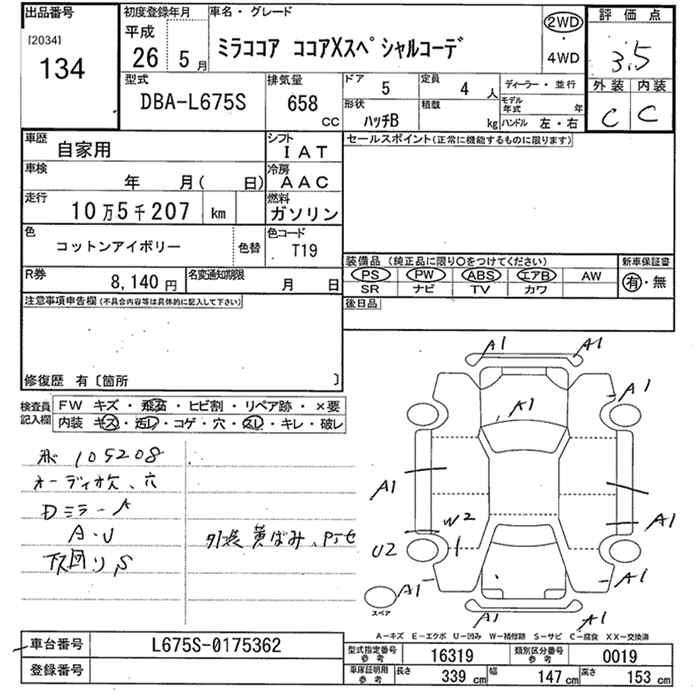 出品番号 初度登録年月 車名・グレード 評価点
[2034] 134 平成 26 5月 ミラココア ココアXスペシャルコーデ 2WD・4WD 3.5
型式 排気量 ドア 5 定員 4人 ディーラー・並行 外装 内装
DBA-L675S 658 CC 形状 ハッチB 積載 kg モデル年式 年 ハンドル 左・右 C C
車歴 自家用 シフト IAT セールスポイント(正常に機能するものに限ります)
車検 年 月( 日) 冷房 AAC
走行 10万5千207 km 燃料 ガソリン
色 コットンアイボリー 色替 色コード T19
装備品(純正品に限り○をつけてください) 新車保証書
R券 8,140円 名変通知期限 月 日 PS PW ABS エアB AW 有・無
SR ナビ TV カワ
注意事項申告欄(不具合内容等は具体的に記入して下さい) 後日品
修復歴 有〔箇所 〕
検査員記入欄 FW キズ・飛石・ヒビ割・リペア跡・×要
内装 キズ・汚レ・コゲ・穴・スレ・キレ・破レ
A1 A1
A1 A1
105208
オーディオ欠、穴 A1
Dミラー A W2 A1
A・U 外装黄ばみ、 U2
下回り、S A1 A1
スペア A1 A1
A-キズ E-エクボ U-凹み W-補修跡 S-サビ C-腐食 XX-交換済
車台番号 L675S-0175362 型式指定番号 参考 16319 類別区分番号 参考 0019
登録番号 車庫証明用 参考 長さ 339 cm 幅 147 cm 高さ 153 cm